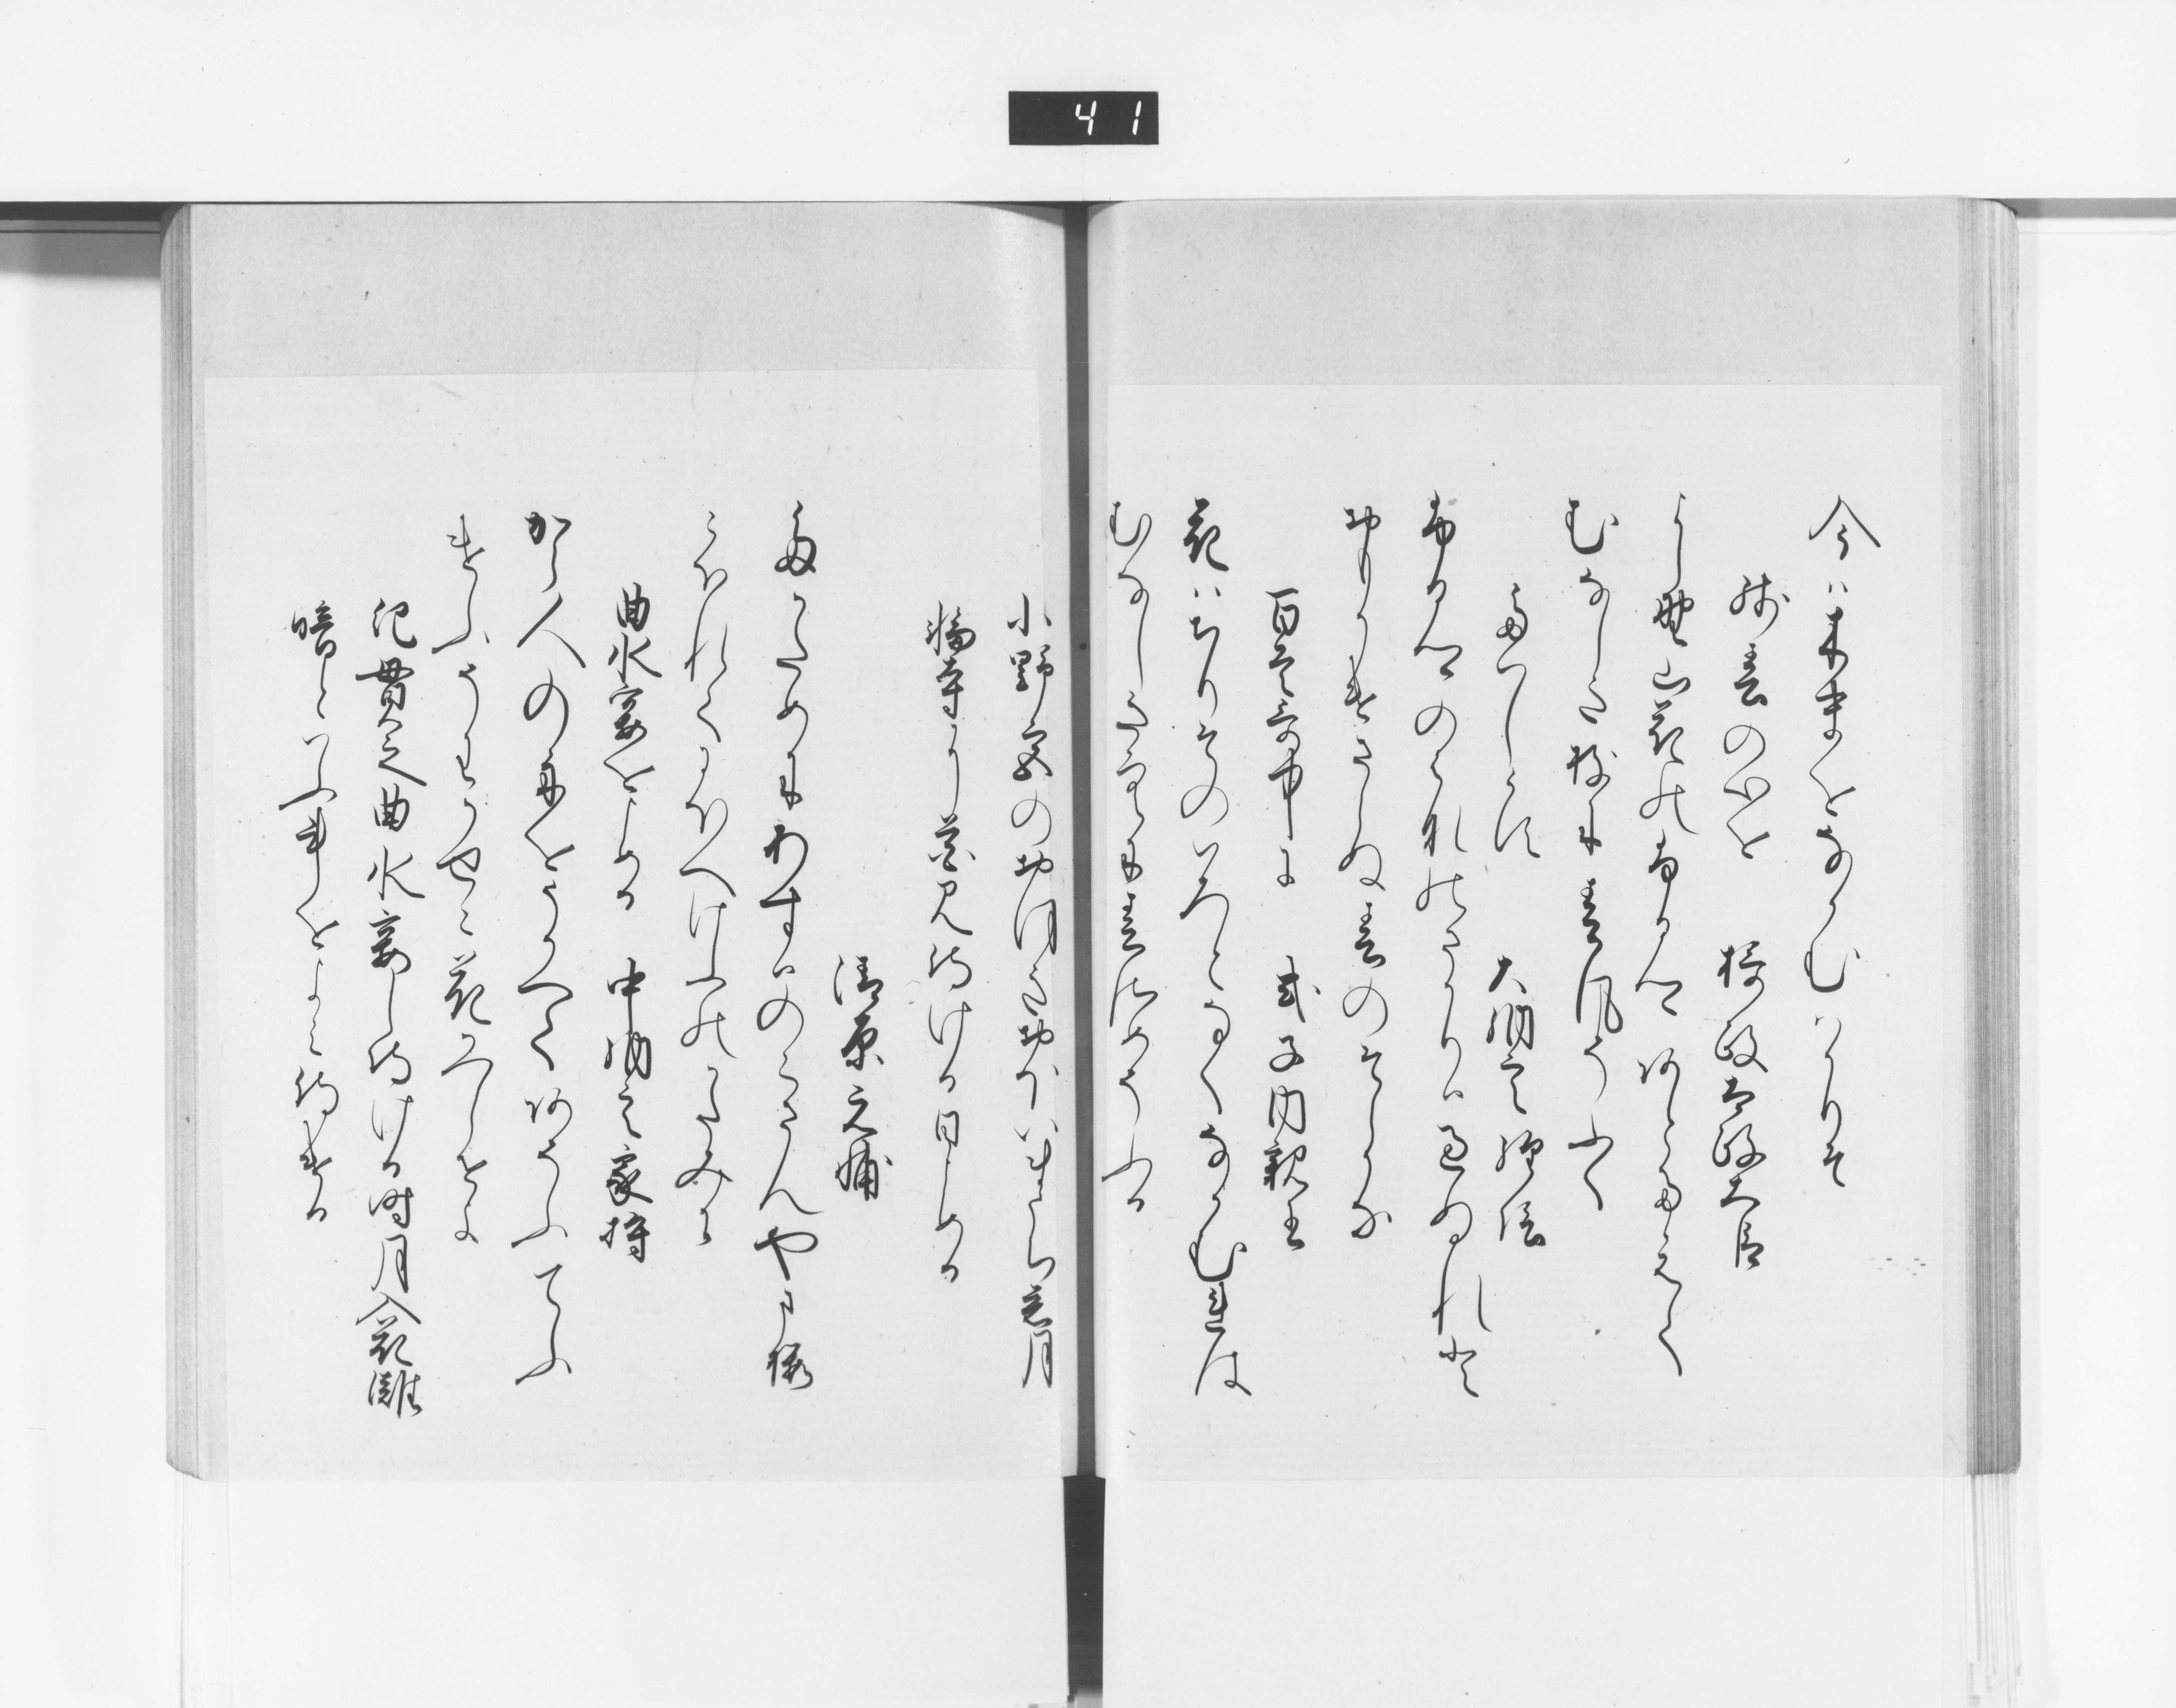 41
今は木末をなかむはかりそ
残春の心を　摂政太政大臣
よし野山花のふるさとあとたえて
むなしき枝に春風そふく
たいしらす　大納言経信
ふるさとの花のさかりは過ぬれと
おもかけさらぬ春のそらかな
百首哥中に　式子内親王
花はちりその いろとなくなかむれは
むなしきそらに春雨そふる
小野宮のおほきおほいまうち君月
輪寺に花見侍ける日よめる
清原元輔
たかためにあすはのこさんやま桜
こほれてにほへけふのかたみに
曲水宴をよめる　中納言家持
から人の舟をうかへてあそふてふ
けふそわかせこ花かつらせよ
紀貫之曲水宴し侍ける時月入花灘
暗といふ事をよみ侍ける